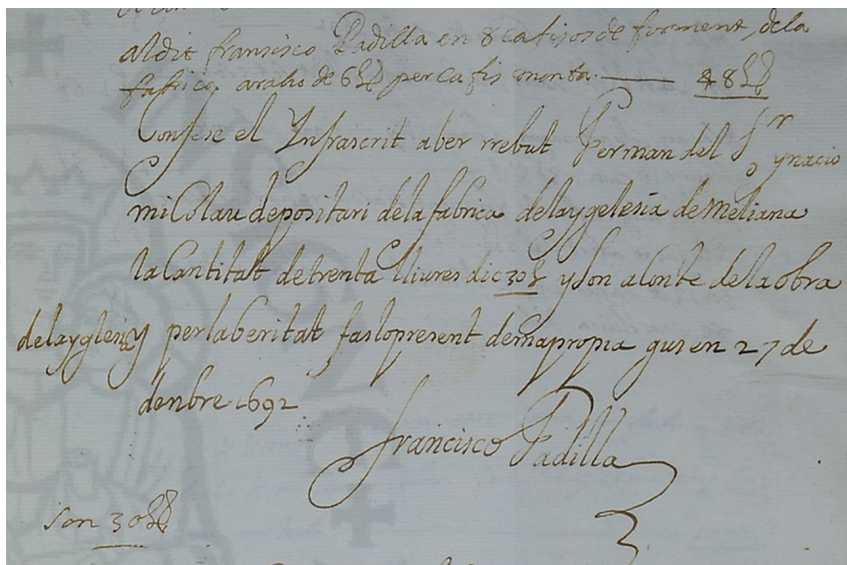 aldit fransisco Padilla en 8 cafisos de forment, dela
fabrica araho de 6 ll per cafis monta — 48 ll
Confese el Ynfrascrit aber rrebut Perman del Sr ynacio
miColau depositari dela fabrica delaygelesia de meliana
la Cantitat de trenta lliures dic 30 ll y son aConte de la obra
delayglesia y per laberitat fas lopresent demapropia gus en 27 de
denbre 1692
francisco Padilla
son 30 ll